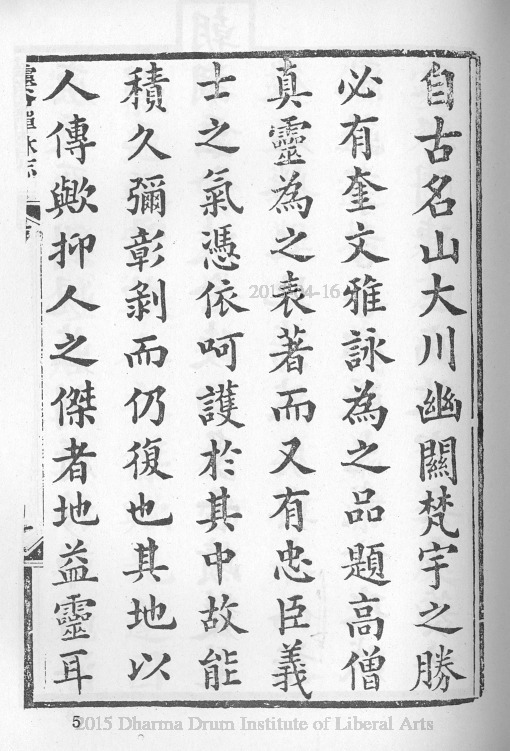 自古名山大川幽關梵宇之勝
必有奎文雅詠為之品題高僧
真靈為之表著而又有忠臣義
士之氣憑依呵護於其中故能
積久彌彰剝而仍復也其地以
人傳歟抑人之傑者地益靈耳
5
2015 Dharma Drum Institute of Liberal Arts